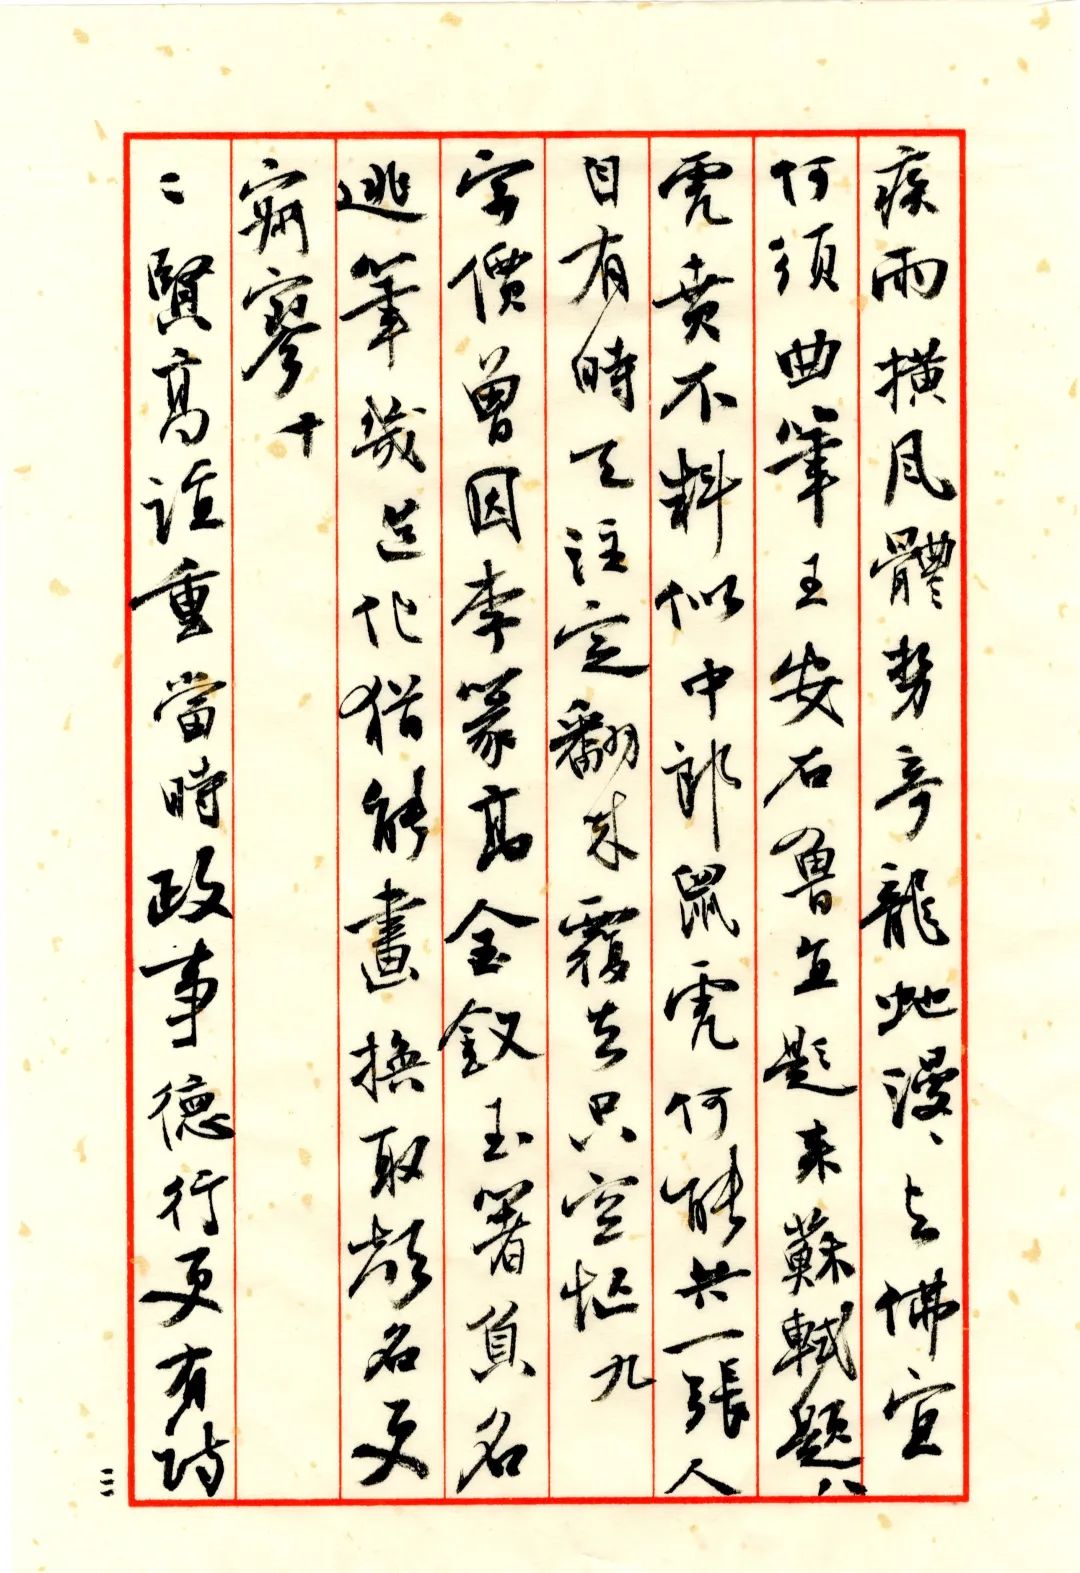 疾雨橫風體勢奇龍虵漫〻与佛宜
何須曲筆王安石魯直題來蘇軾題八
虎賁不料似中郎鼠虎何能共一張人
目有時天註定翻來覆去只空忙九
字價曾因李篆高金釵玉箸負名
逃筆造化猶能畫換取名更
寥十
二賢高誼重當時政事德行更有詩
二二